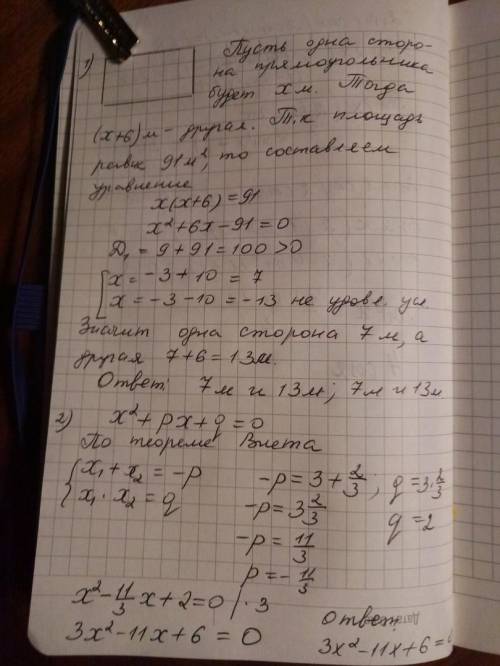 1) Пусть одна сторо-
на прямоугольника
будет x м. Тогда
(x+6)м - другая. Т.к площадь
равна 91м², то составляем
уравнение
x(x+6)=91
x²+6x-91=0
D₁=9+91=100>0
[x=-3+10=7
x=-3-10=-13 не удовл. усл.
Значит одна сторона 7м, а
другая 7+6=13м.
Ответ: 7м и 13м; 7м и 13м
2) x²+px+q=0
По теореме Виета
{x₁+x₂=-p
x₁·x₂=q
-p=3+2/3; q=3·2/3
-p=3 2/3
q=2
-p=11/3
p=-11/3
x²-11/3x+2=0 |·3
3x²-11x+6=0
Ответ:
3x²-11x+6=0